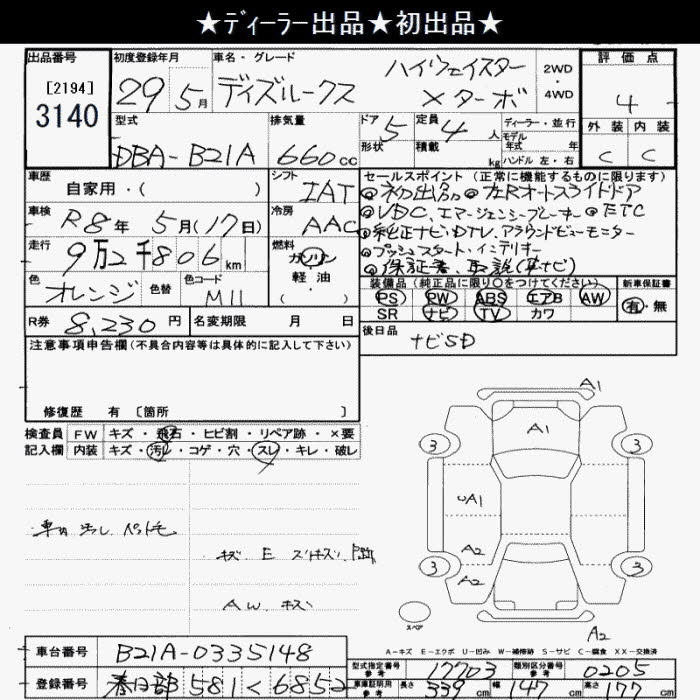 ★ディーラー出品★初出品★
出品番号
[2194]
3140
初度登録年月
29年5月
車名・グレード
デイズルークス
ハイウェイスター
Xターボ
2WD
・
4WD
評価点
4
外装 内装
C C
型式
DBA-B21A
排気量
660cc
ドア 5
形状
定員 4人
積載 kg
ディーラー・並行
モデル
年式 年
ハンドル 左・右
車歴
自家用・( )
シフト
IAT
車検
R8年 5月(17日)
冷房
AAC
走行
9万2千806km
燃料
ガソリン
軽油
( ・ )
色
オレンジ
色替
色コード
M11
セールスポイント (正常に機能するものに限ります)
◎初出品 ◎左Rオートスライドドア
◎VDC、エマージェンシーブレーキー ◎ETC
◎純正ナビ・DTV、アラウンドビューモニター
◎プッシュスタート・インテリキー
◎保証書、取説(車ナビ)
装備品 (純正品に限り○をつけてください)
PS PW ABS エアB AW
SR ナビ TV カワ
新車保証書
有・無
R券 8,230円
名変期限 月 日
後日品
ナビSD
注意事項申告欄(不具合内容等は具体的に記入して下さい)
修復歴 有 [箇所 ]
検査員
記入欄
FW キズ・飛石・ヒビ割・リペア跡・×要
内装 キズ・汚レ・コゲ・穴・スレ・キレ・破レ
車内 汚レ ペット毛
キズ E スリキズ
AW キズ
A1
A1
3
3
UA1
A2
3
3
A2
スペア
A2
A-キズ E-エクボ U-凹み W-補修跡 S-サビ C-腐食 XX-交換済
車台番号 B21A-0335148
登録番号 春日部 581 く 6852
型式指定番号
参考
17703
類別区分番号
参考
0205
車庫証明用
参考
長さ 339cm 幅 147cm 高さ 177cm